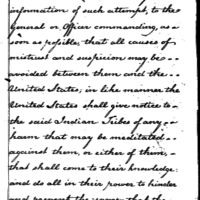 information of such attempt, to the
General or Officer commanding, as
soon as possible, that all causes of
mistrust and suspicion may be
avoided between them and the
United States, in like manner the
United States shall give notice to
the said Indian Tribes of any
harm that may be meditated
against them, or either of them,
that shall come to their knowledge;
and do all in their power to hinder
and prevent the same, that the